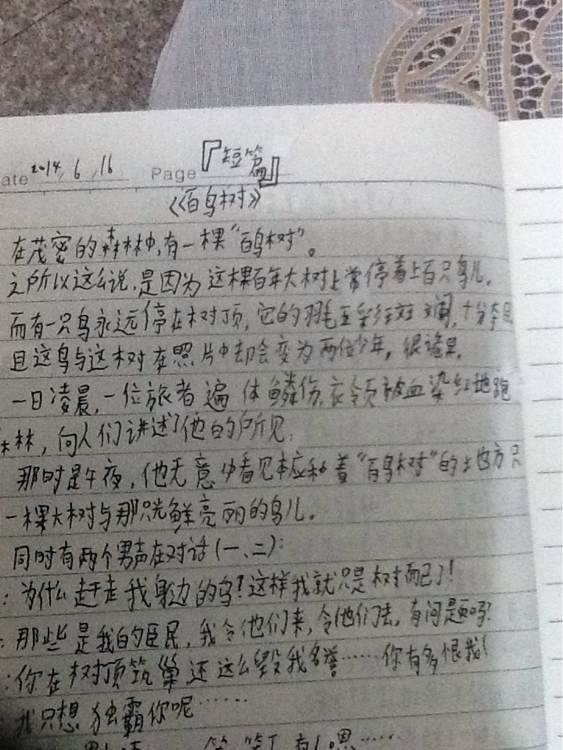 ate 2014, 6, 16 Page 『短篇』
《百鸟树》
在茂密的森林中,有一棵“百鸟树”。
之所以这么说,是因为这棵百年大树上常停着上百只鸟儿,
而有一只鸟永远停在树顶,它的羽毛五彩斑斓,十分夺目
且这鸟与这树在照片中却会变为两位少年,很诡异。
一日凌晨,一位旅者遍体鳞伤,衣领被血染红地跑
森林,向人们讲述了他的所见:
那时是午夜,他无意中看见本应和着“百鸟树”的土地方只
一棵大树与那只光鲜亮丽的鸟儿。
同时有两个男声在对话(一、二):
:为什么赶走我身边的鸟!这样我就只是树而已了!
:那些是我的臣民,我令他们来,令他们去,有问题吗?
:你在树顶筑巢还这么毁我名誉……你有多恨我!
:我只想独霸你呢……